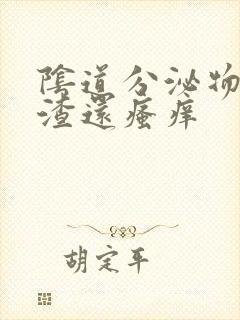 陰道分泌物
渣還瘙痒
胡定平